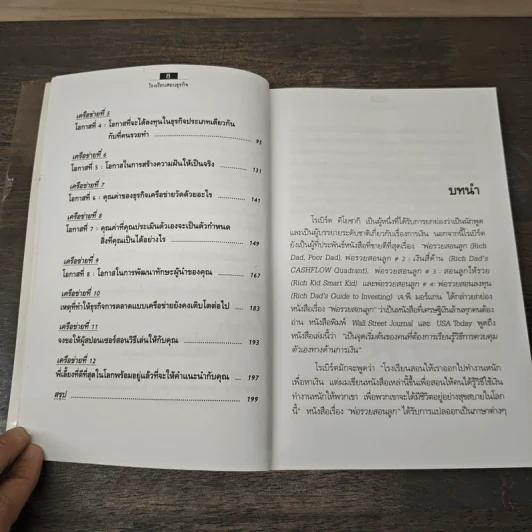 8
โรงเรียนสอนธุรกิจ
เครือข่ายที่ 5
โอกาสที่ 4 : โอกาสที่จะได้ลงทุนในธุรกิจประเภทเดียวกัน
กับที่คนรวยทำ ........ 95
เครือข่ายที่ 6
โอกาสที่ 5 : โอกาสในการสร้างความฝันให้เป็นจริง ........ 131
เครือข่ายที่ 7
โอกาสที่ 6 : คุณค่าของธุรกิจเครือข่ายวัดด้วยอะไร ........ 141
เครือข่ายที่ 8
โอกาสที่ 7 : คุณค่าที่คุณประเมินตัวเองจะเป็นตัวกำหนด
สิ่งที่คุณเป็นได้อย่างไร ........ 149
เครือข่ายที่ 9
โอกาสที่ 8 : โอกาสในการพัฒนาทักษะผู้นำของคุณ ........ 167
เครือข่ายที่ 10
เหตุที่ทำให้ธุรกิจการตลาดแบบเครือข่ายยังคงเติบโตต่อไป ........ 183
เครือข่ายที่ 11
จงขอให้ผู้สปอนเซอร์สอนวิธีเล่นให้กับคุณ ........ 193
เครือข่ายที่ 12
พี่เลี้ยงที่ดีที่สุดในโลกพร้อมอยู่แล้วที่จะให้คำแนะนำกับคุณ ........ 197
สรุป ........ 199
บทนำ
โรเบิร์ต คิโยซากิ เป็นผู้หนึ่งที่ได้รับการยกย่องว่าเป็นนักพูด
และเป็นผู้บรรยายระดับชาติเกี่ยวกับเรื่องการเงิน นอกจากนี้โรเบิร์ต
ยังเป็นผู้ที่ประพันธ์หนังสือที่ขายดีที่สุดเรื่อง "พ่อรวยสอนลูก (Rich
Dad, Poor Dad), พ่อรวยสอนลูก # 2 : เงินสี่ด้าน (Rich Dad's
CASHFLOW Quadrant), พ่อรวยสอนลูก # 3 : สอนลูกให้รวย
(Rich Kid Smart Kid) และพ่อรวยสอนลูก # 4: พ่อรวยสอนลงทุน
(Rich Dad's Guide to Investing) เจ.พี. มอร์แกน ได้กล่าวยกย่อง
หนังสือเรื่อง "พ่อรวยสอนลูก" ว่าเป็นหนังสือที่เศรษฐีเงินล้านทุกคนต้อง
อ่าน หนังสือพิมพ์ Wall Street Journal และ USA Today พูดถึง
หนังสือเล่มนี้ว่า "เป็นจุดเริ่มต้นของคนที่ต้องการเรียนรู้วิธีการควบคุม
ตัวเองทางด้านการเงิน"
โรเบิร์ตมักจะพูดว่า "โรงเรียนสอนให้เราออกไปทำงานหนัก
เพื่อหาเงิน แต่ผมเขียนหนังสือเหล่านี้ขึ้นเพื่อสอนให้คนได้รู้วิธีใช้เงิน
ทำงานหนักให้พวกเขา เพื่อพวกเขาจะได้มีชีวิตอยู่อย่างสุขสบายในโลก
นี้" หนังสือเรื่อง "พ่อรวยสอนลูก" ได้รับการแปลออกเป็นภาษาต่างๆ